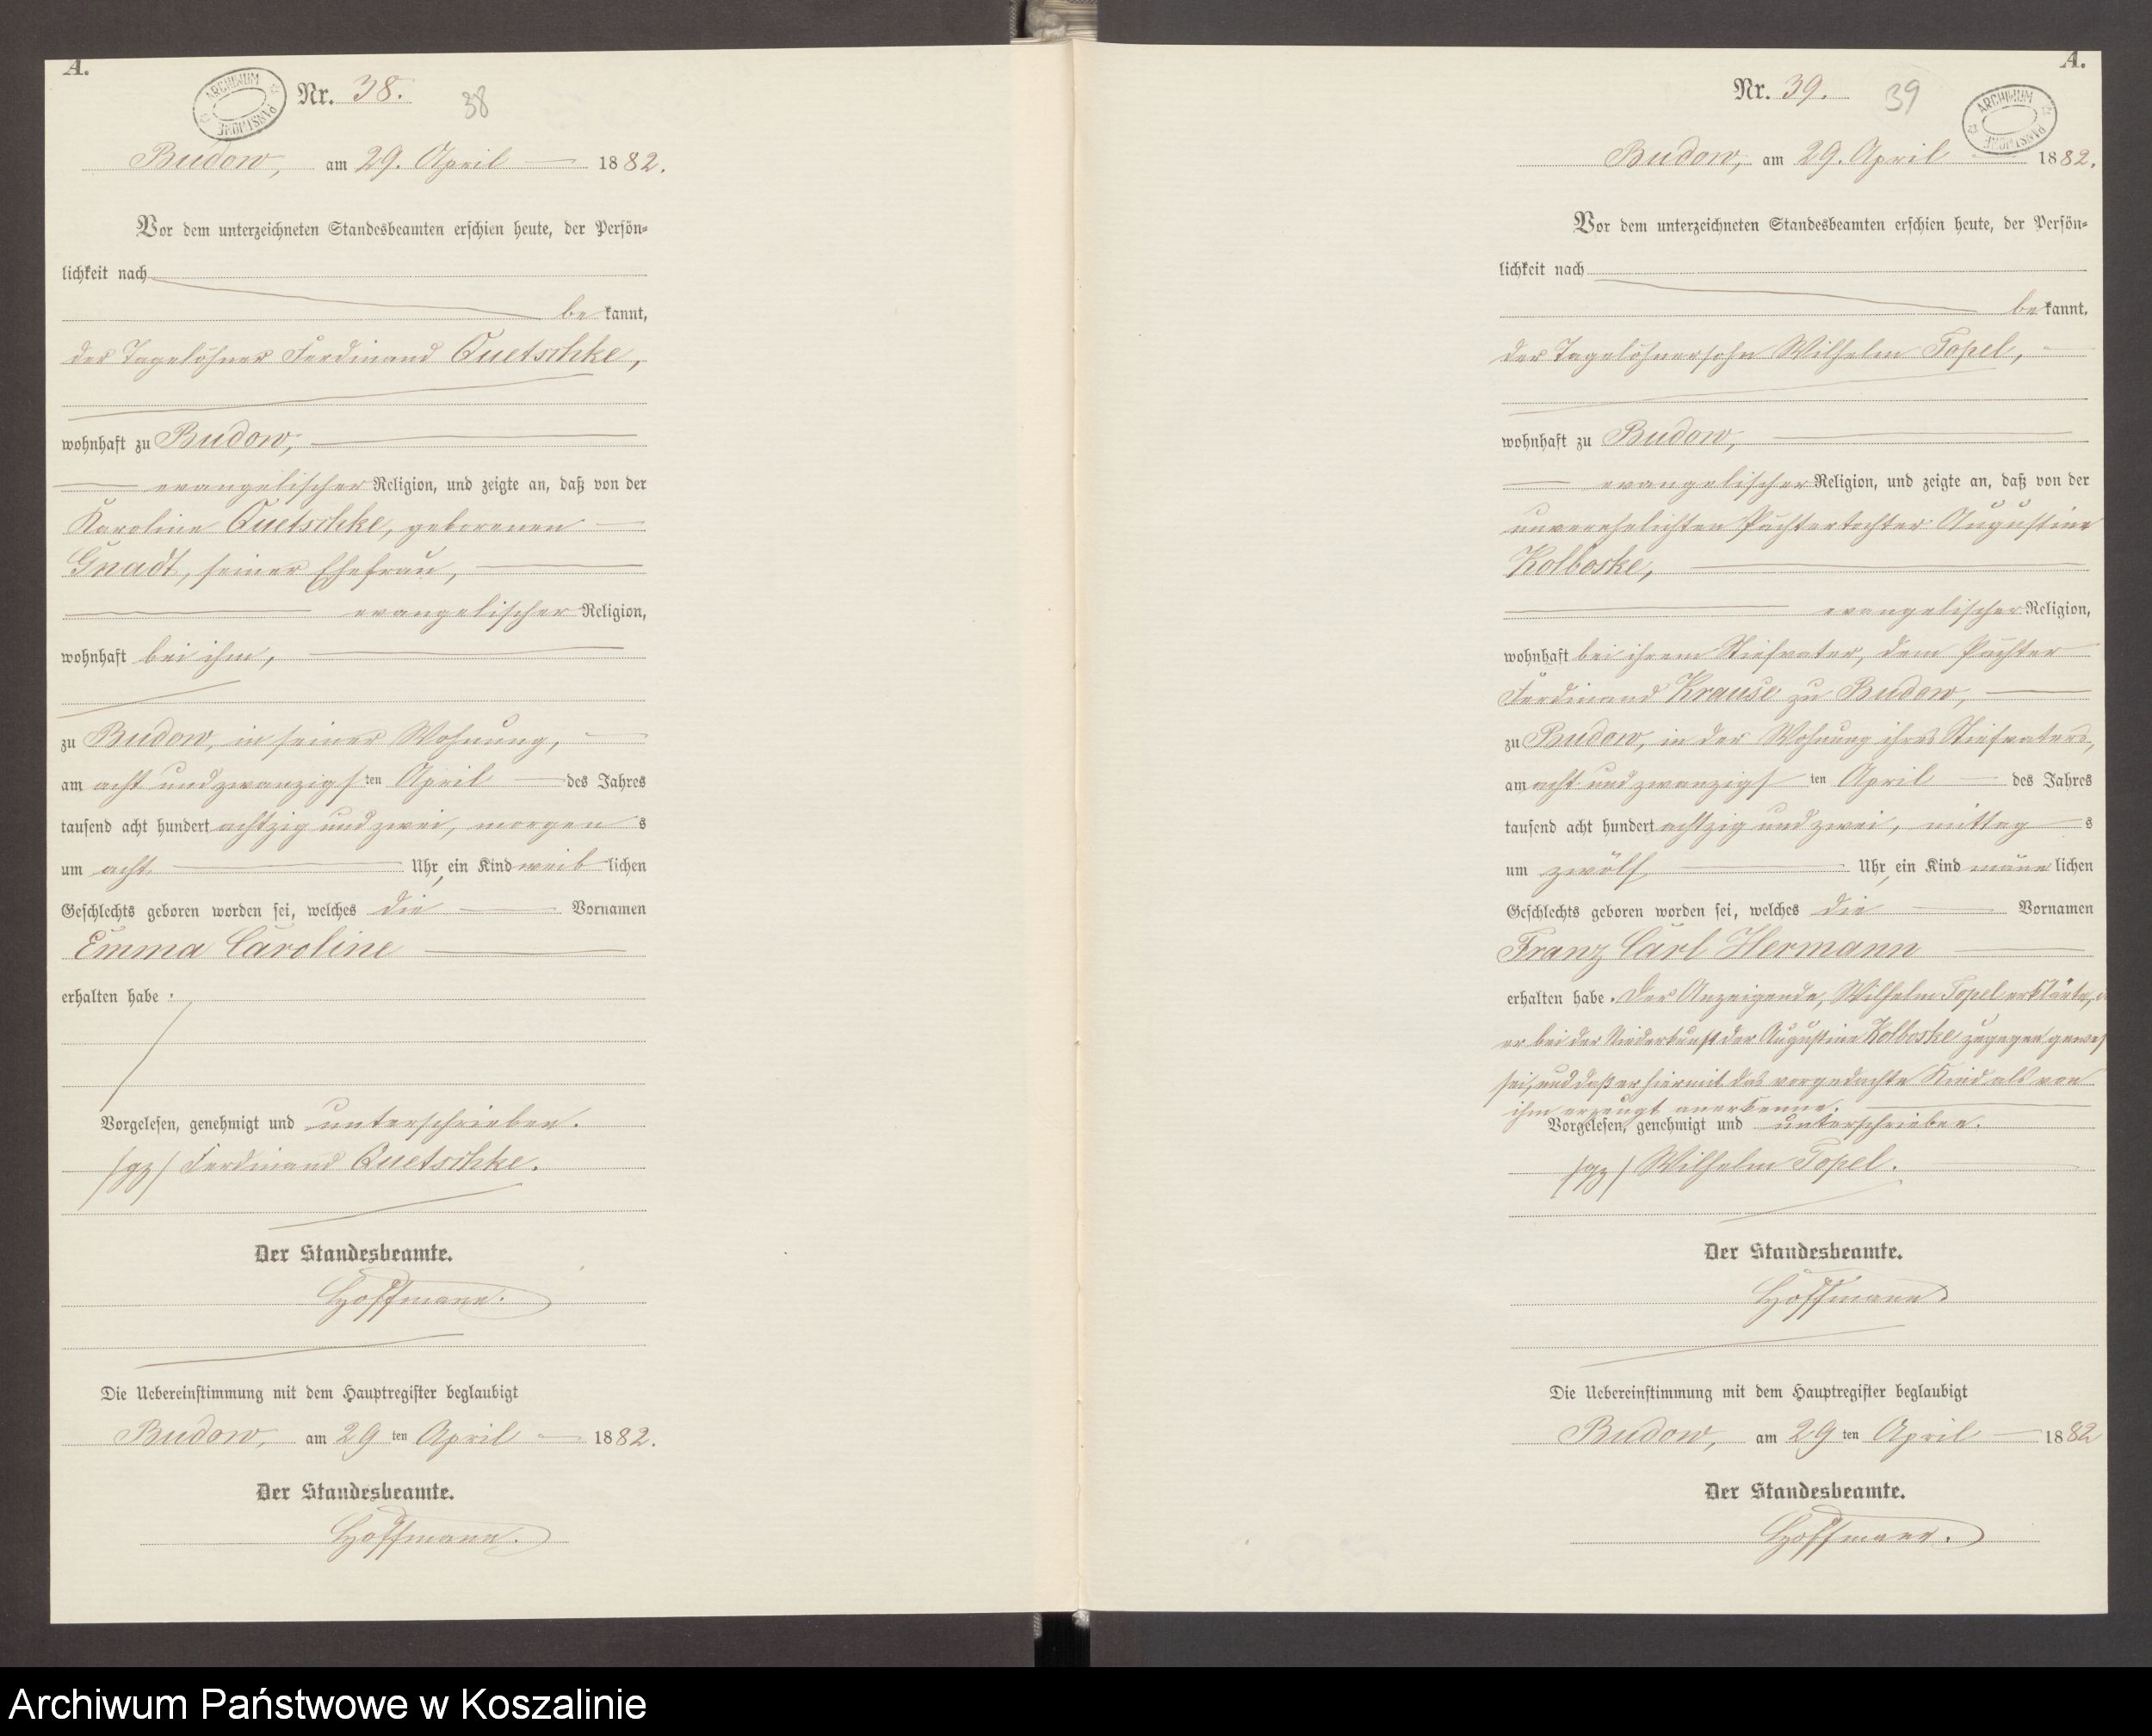 A.
ARCHIWUM PAŃSTWOWE
Nr. 38.
38
Budow, am 29. April 1882.
Vor dem unterzeichneten Standesbeamten erschien heute, der Persön-
lichkeit nach
bekannt,
der Tagelöhner Ferdinand Quetschke,
wohnhaft zu Budow,
evangelischer Religion, und zeigte an, daß von der
Karoline Quetschke, geborenen
Gnadt, seiner Ehefrau,
evangelischer Religion,
wohnhaft bei ihm,
zu Budow, in seiner Wohnung,
am acht und zwanzigsten April des Jahres
tausend acht hundert achtzig und zwei, morgens
um acht Uhr, ein Kind weiblichen
Geschlechts geboren worden sei, welches die Vornamen
Emma Caroline
erhalten habe.
Vorgelesen, genehmigt und unterschrieben.
/gz/ Ferdinand Quetschke.
Der Standesbeamte.
Hoffmann.
Die Uebereinstimmung mit dem Hauptregister beglaubigt
Budow, am 29ten April 1882.
Der Standesbeamte.
Hoffmann.
A.
Nr. 39.
39
ARCHIWUM PAŃSTWOWE
Budow, am 29. April 1882.
Vor dem unterzeichneten Standesbeamten erschien heute, der Persön-
lichkeit nach
bekannt,
der Tagelöhnersohn Wilhelm Topel,
wohnhaft zu Budow,
evangelischer Religion, und zeigte an, daß von der
unverehelichten Pächtertochter Augustine
Kolboske,
evangelischer Religion,
wohnhaft bei ihrem Stiefvater, dem Pächter
Ferdinand Krause zu Budow,
zu Budow, in der Wohnung ihres Stiefvaters,
am acht und zwanzigsten April des Jahres
tausend acht hundert achtzig und zwei, mittags
um zwölf Uhr, ein Kind männlichen
Geschlechts geboren worden sei, welches die Vornamen
Franz Carl Hermann
erhalten habe. Der Anzeigende, Wilhelm Topel erklärte,
er bei der Niederkunft der Augustine Kolboske zugegen gewes
sei, und daß er hiermit das vorgedachte Kind als von
ihm erzeugt anerkenne.
Vorgelesen, genehmigt und unterschrieben.
/gz/ Wilhelm Topel.
Der Standesbeamte.
Hoffmann
Die Uebereinstimmung mit dem Hauptregister beglaubigt
Budow, am 29ten April 1882
Der Standesbeamte.
Hoffmann.
Archiwum Państwowe w Koszalinie